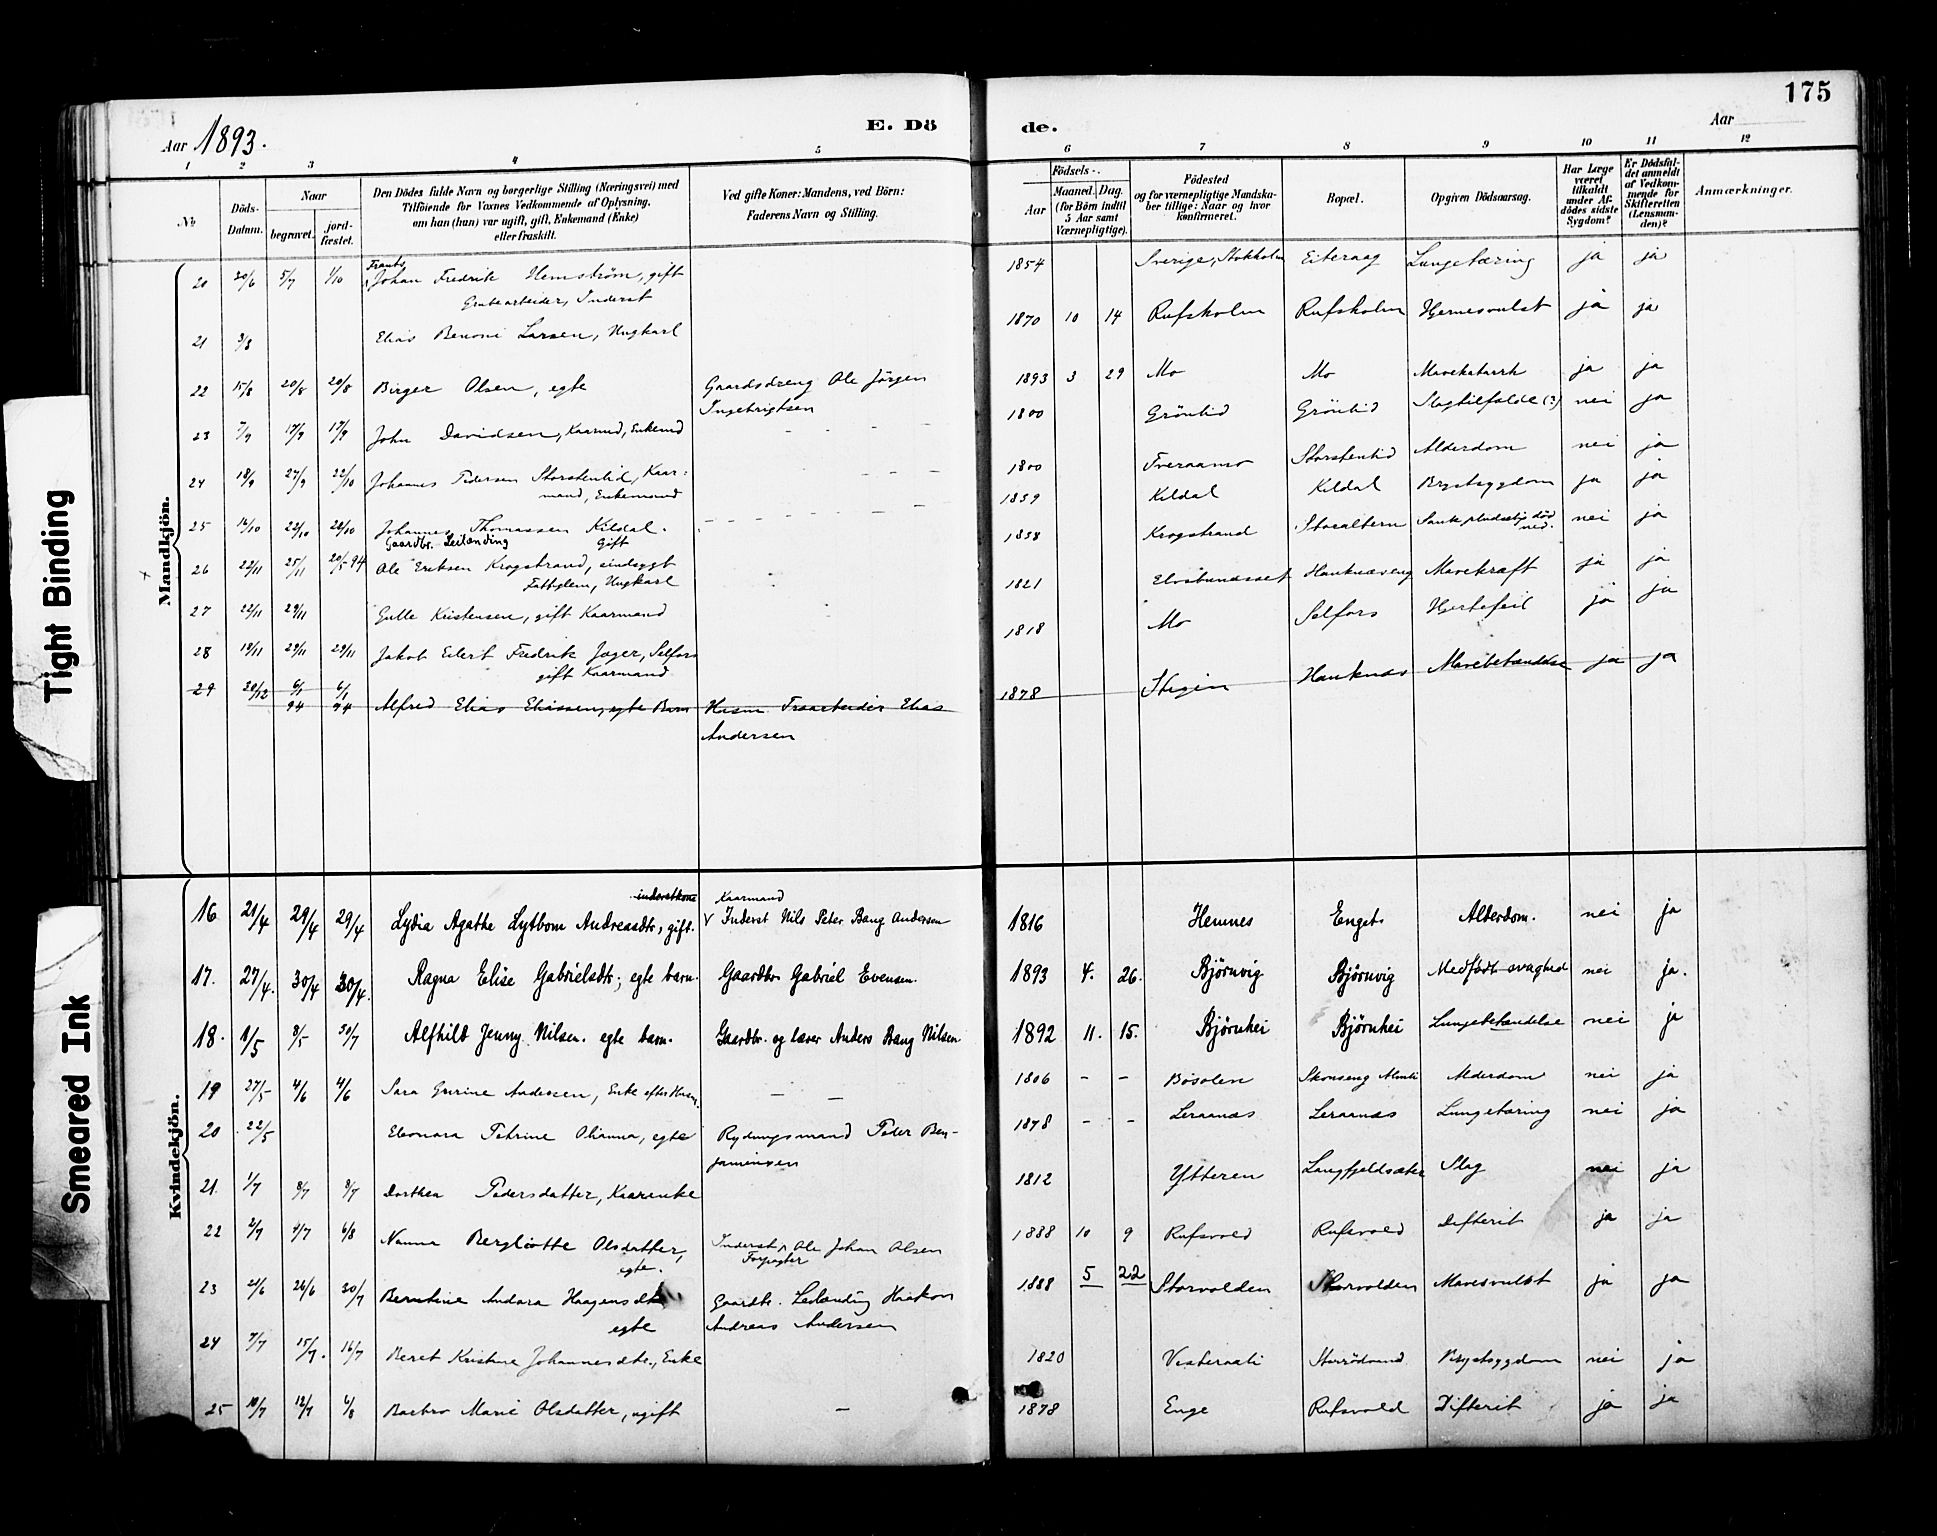 175
Aar 1893.
E. Dö
de.
Aar
1 2 3 4 5
6 7 8 9 10 11 12
No.
Döds-Datum.
Naar
begravet.
jord-fæstet.
Den Dödes fulde Navn og borgerlige Stilling (Næringsvei) med
Tilföiende for Voxnes Vedkommende af Oplysning,
om han (hun) var ugift, gift, Enkemand (Enke)
eller fraskilt.
Ved gifte Koner: Mandens, ved Börn:
Faderens Navn og Stilling.
Födsels-.
Aar
Maaned. Dag.
(for Börn indtil
5 Aar samt
Værnepligtige).
Födested
og for værnepligtige Mandska-
ber tillige: Naar og hvor
konfirmeret.
Bopæl.
Opgiven Dödsaarsag.
Har Læge
været
tilkaldt
under Af-
dödes sidste
Sygdom?
Er Dödsfal-
det anmeldt
af Vedkom-
mende for
Skifteretten
(Lensman-
den)?
Anmærkninger.
Mandkjön.
Frants
20 20/6 5/7 1/10 Johan Fredrik Hemström, gift 1854 Sverige, Stokholm Eiteraag Lungetæring ja ja
Grubearbeider, Inderst
21 3/8 Elias Benoni Larsen, Ungkarl 1870 10 14 Rufsholm Rufsholm Hjernesvulst ja ja
22 15/8 20/8 20/8 Birger Olsen, egte Gaardsdreng Ole Jörgen 1893 3 29 Mo Mo Mavekatarrh ja ja
Ingebrigtsen
23 7/9 17/9 17/9 John Davidsen, Kaarmd, Enkemd - - - - 1800 Gröntid Gröntid Slagtilfælde (?) nei ja
24 18/9 27/9 22/10 Johannes Pedersen Storstentid, Kaar- - - - 1800 Tveraamo Storstentid Alderdom nei ja
mand, Enkemand
25 12/10 22/10 22/10 Johannes Thomassen Kildal. - - - - - - - 1859 Kildal Kildal Brystsygdom ja ja
Gaardbr. Leilænding Gift
26 22/11 25/11 20/5 94 Ole Eriksen Krogstrand, sindssygt 1858 Krogstrand Storaltern Sank pludselig död ned. nei ja
Fattiglem, Ungkarl
27 22/11 29/11 Gulle Kristensen, gift Kaarmand 1821 Hauknæseng Mavekræft ja ja
28 19/11 29/11 29/11 Jakob Eilert Fredrik Jæger, Selfors 1818 Mo Selfors Hjertefeil ja ja
gift Kaarmand
29 30/12 6/1 94 6/1 94 Alfred Elias Eliassen, egte Barn Husm Træarbeider Elias 1878 Stigen Hauknæs Mavebetændelse ja ja
Andersen
Kvindekjön.
inderstkone Kaarmand
16. 21/4 29/4 29/4 Lydia Agathe Lytbom Andreasdtr, gift. v Inderst Nils Peter Bang Andersen 1816 Hemnes Enget. Alderdom. nei ja
17. 27/4. 30/4 30/4. Ragna Elise Gabrielsdtr; egte barn. Gaardbr Gabriel Evensen. 1893 4. 26. Björnvig Björnvig Medfödt svaghed nei ja.
18. 1/5 8/5 30/7 Alfhild Jenny Nilsen. egte barn. Gaardbr. og lærer Anders Bang Nilsen 1892 11. 15. Björnhei Björnhei Lungebetændelse nei ja
19 27/5 4/6 4/6 Sara Gurine Andersen, Enke efter Husm. — — 1806 - - Bösolen Skonseng Alderdom nei ja
20 22/5 Eleonora Petrine Olianna, egte Rydningsmand Peder Ben- 1878 - - Leraanæs Leraanæs Lungetæring nei ja
jaminsen
21. 1/7 9/7 9/7 Dorthea Pedersdatter, Kaarenke 1812 Ytteren Langfjeldsæter Slag nei ja
22 2/7 4/7 6/8 Nanna Bergliotte Olsdatter, Inderst, Ole Johan Olsen 1888 10 9 Rufsvold Rufsvold Difterit ja ja
egte. Forpagter
23 21/6 26/6 30/7 Berntine Andora Haagensdtr Gaardbr. Leilænding Haakon 1888 5 22 Storvolden Storvolden Mavesvulst ja ja
egte Andreas Andersen
24 7/7 15/7. 16/7 Beret Kristine Johannesdtr., Enke 1820 Vesteraali Brystsygdom nei ja
25 10/7 12/7 6/8 Barbro Marie Olsdatter, ugift — 1878 Enge Rufsvold Difterit ja ja
Tight Binding
Smeared Ink